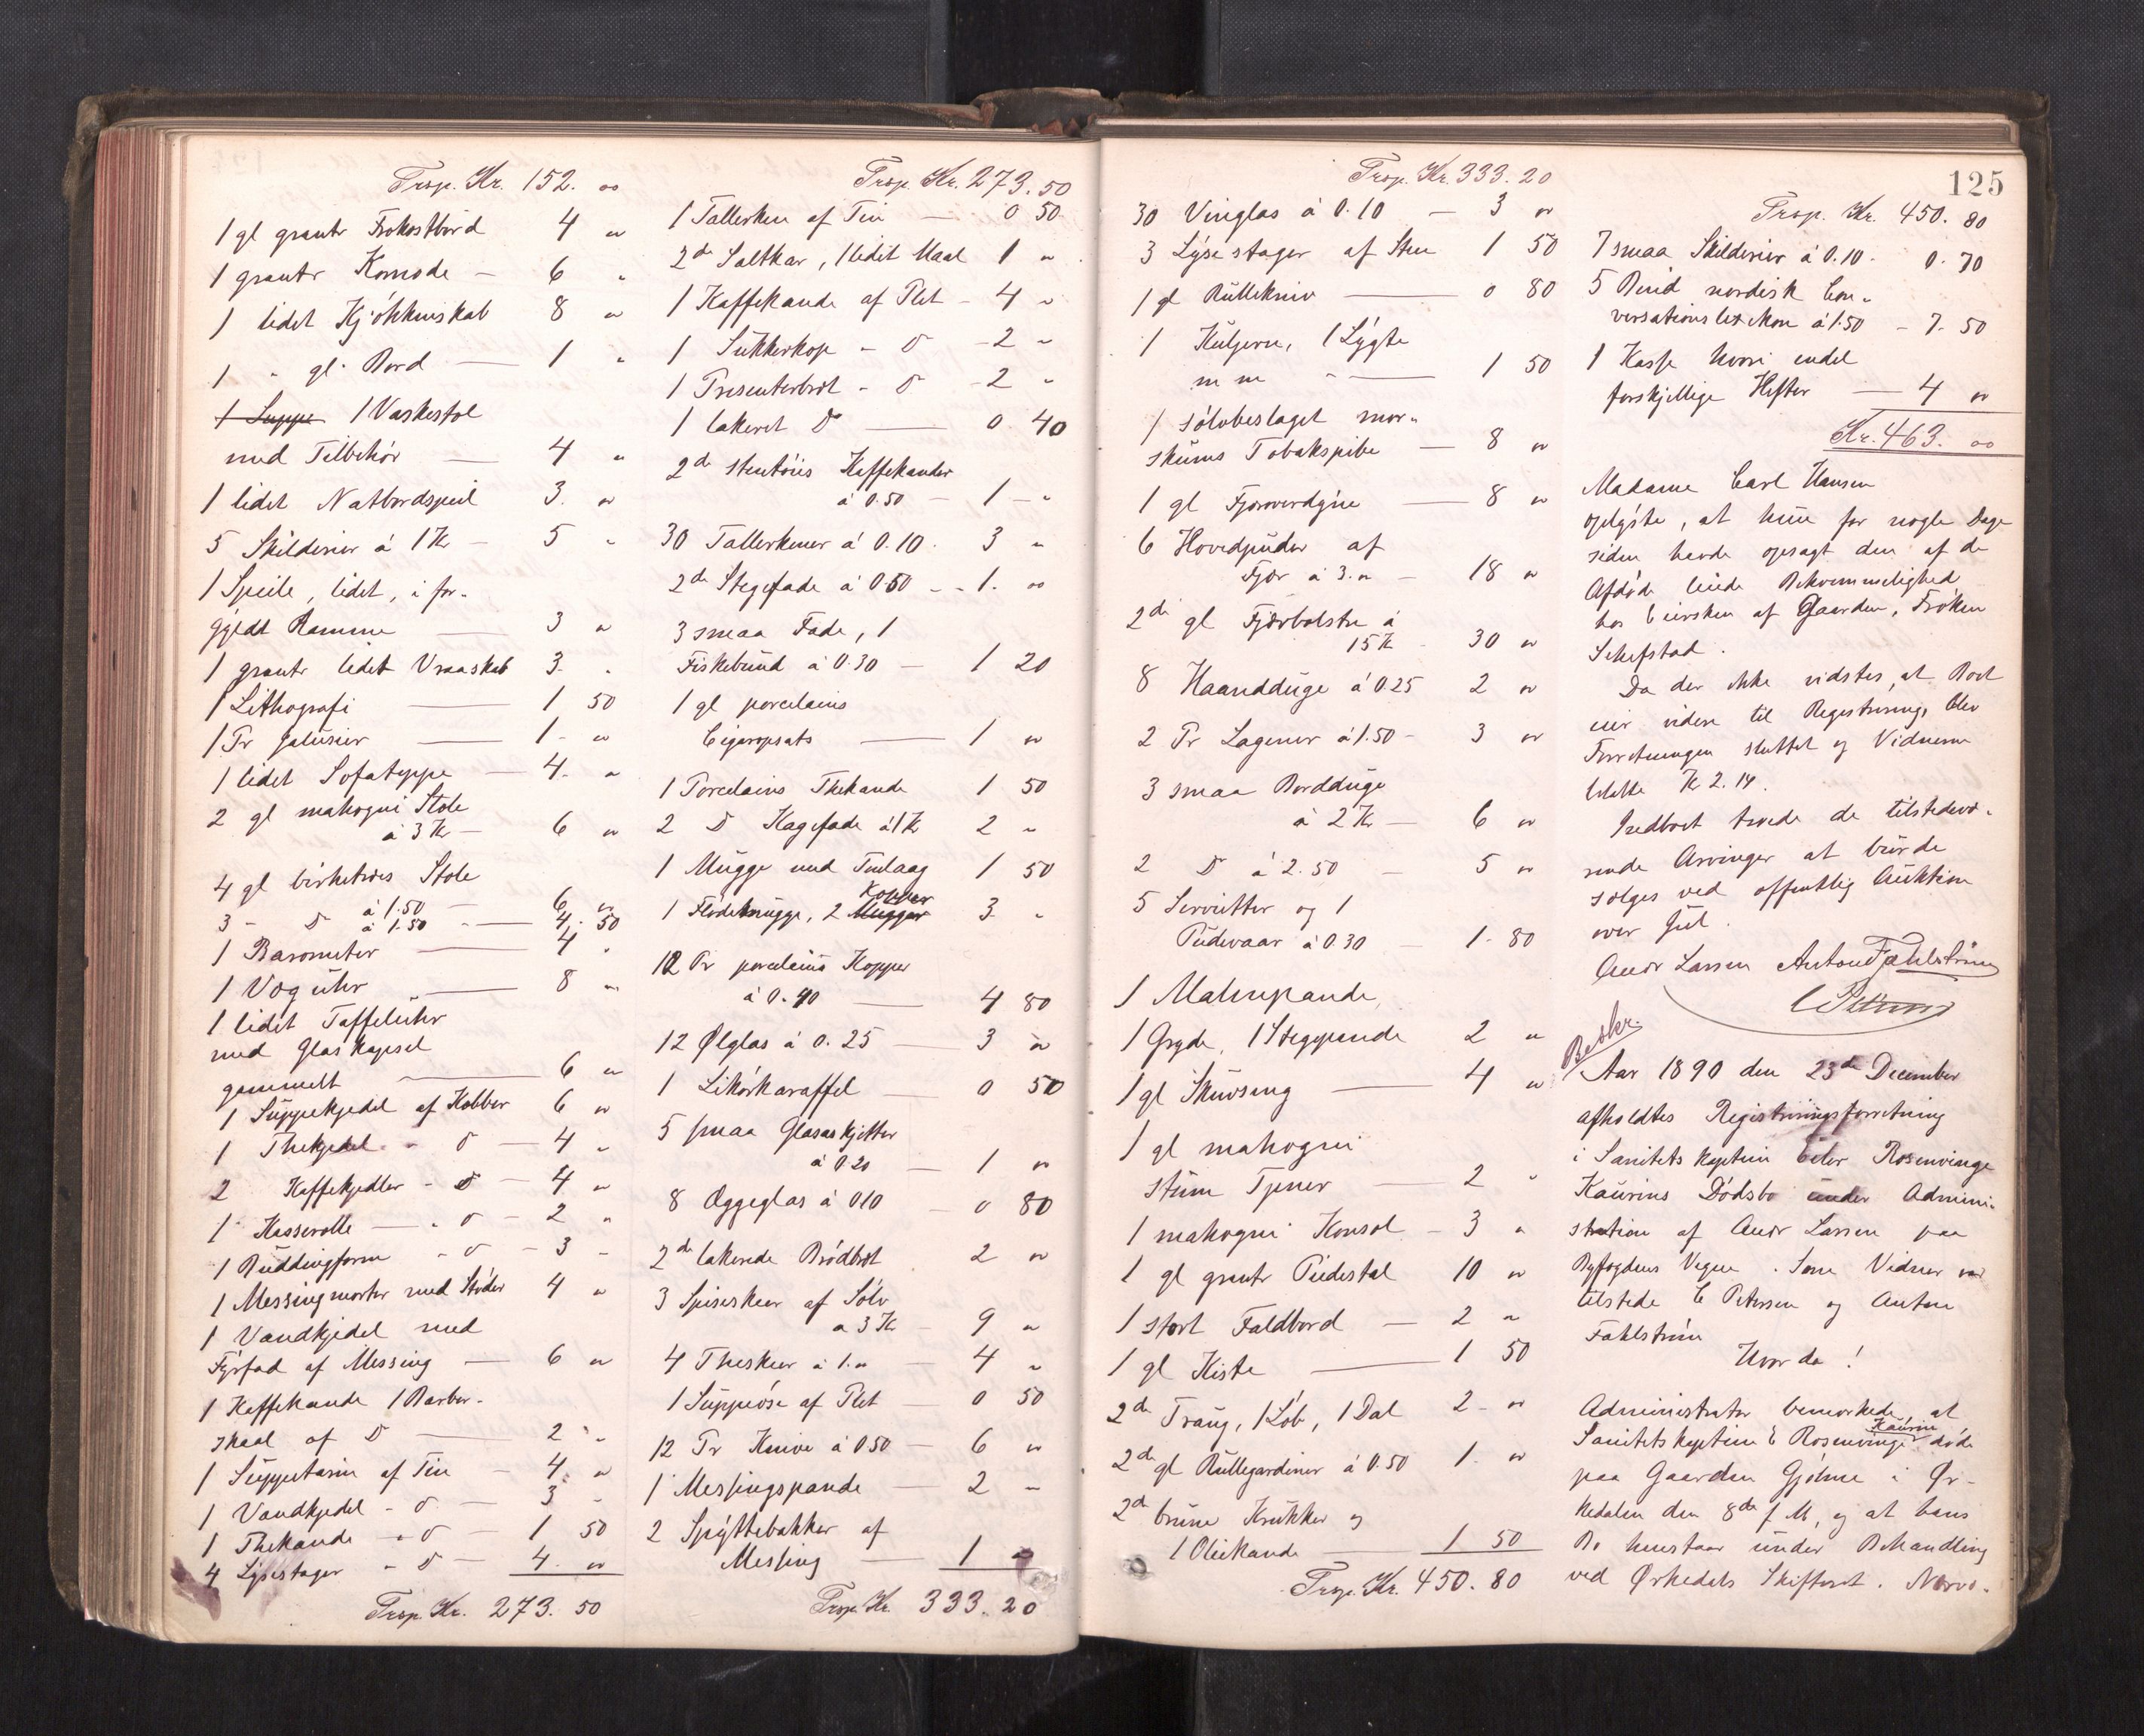 Trsp. Kr. 152. oo
1 gl grantr Frokostbord 4 "
1 grantr Komode - 6 "
1 lidet Kjökkenskab 8 "
1 " gl. Bord — 1 "
1 Suppe 1 Vaskestol
med Tilbehör — 4 "
1 lidet Natbordspeil 3. "
5 Skilderier á 1 Kr - 5 "
1 Speile, lidet, i for-
gyldt Ramme — 3 "
1 grantr lidet Vraaskab 3. "
1 Lithografi — 1 50
1 Pr Jalusier — 1 - "
1 lidet Sofateppe — 4. "
2 gl mahogni Stole
á 3 Kr — 6 "
4 gl birketræes Stole
á 1.50 — 6 "
3 - D á 1.50 — 4. 50
1 Barometer — 4 "
1 Væguhr — 8 "
1 lidet Taffeluhr
med Glaskapsel
gammelt — 6 "
1 Suppekjedel af Kobber 6 "
1 Thekjedel - D — 4 "
2 Kaffekjedler - D — 4 "
1 Kasserolle — " D - 2 "
1 Buddingform - D - 3 -
1 Messingmorter med Stöder 4 "
1 Vandkjedel med
Fyrfad af Messing — 6 "
1 Kaffekande 1 Barber-
skaal af D — 2 "
1 Suppeterin af Tin - 4. "
1 Vandkjedel - D. — 3 -
1 Thekande - D 1 50
4 Lysestager - D — 4. "
Trsp. Kr. 273. 50
Trsp. Kr. 273. 50
1 Tallerken af Tin — 0 50
2de Saltkar, 1 lidet Maal 1 "
1 Kaffekande af Plet - 4 "
1 Sukkerkop - D - 2 "
1 Presenterbret - D - 2 "
1 lakeret D — 0. 40
2de stentöis Kaffekander
á 0.50 — 1 - "
30 Tallerkener á 0.10. 3 "
2de Stegefade á 0.50 - - 1. oo
3 smaa Fade, 1
Fiskebund á 0.30 — 1 20
1 gl porcelains
Cigaropsats — 1 "
1 Porcelains Thekande 1 50
2 D Kagefade á 1 Kr 2 "
1 Mugge med Tinlaag 1 50
Kopper
1 Flödemugge, 2 Mugger 3. "
12 Pr porcelains Kopper
á 0.40 — 4 80
12 Ølglas á 0.25 — 3 "
1 Likörkaraffel — 0 50
5 smaa Glasaskjetter
á 0 20 — 1 "
8 Æggeglas á 010 - 0 80
2de lakerede Brödbret 2 "
3 Spiseskeer af Sölv
a 3 Kr - 9 "
4 Theskeer á 1." 4 "
1 Suppeöse af Plet 0 50
12 Pr Knive á 0 50 — 6 "
1 Messingspande — 2 -
2 Spyttebakker af
Messing — 1 "
Trsp. Kr. 333. 20
125
Trsp. Kr. 333. 20
30 Vinglas á 0.10 — 3 "
3 Lysestager af Sten 1 50
1 gl Rullekniv — 0 80
1 Kuljern, 1 Lygte
m m - — 1 50
1 sölvbeslaget mer-
skums Tobakspibe — 8 "
1 gl Fjæroverdyne — 8 "
6 Hovedpuder af
Fjær á 3." — 18 "
2de gl Fjærbolstre á
15 Kr - 30 "
8 Haandduge á 0.25 2 "
2 Pr Lagener á 1.50 - 3 "
3 smaa Bordduge
á 2 Kr — 6 "
2 D á 2.50 — 5 "
5 Servietter og 1
Pudevaar á 0.30 — 1. 80
1 Malmpande,
1 Gryde, 1 Stegepande 2 "
1 gl Skuvseng — 4 "
1 gl mahogni
stum Tjener — 2 "
1 mahogni Konsol - 3 "
1 gl grantr Piedestal 10 "
1 stort Faldbord — 2 "
1 gl Kiste — 1 50
2de Traug, 1 Löb, 1 Dal 2 - "
2de gl Rullegardiner á 0.50 1. "
2de brune Krukker og
1 Oliekande — 1 50
Trsp. Kr. 450. 80
Trsp. Kr. 450. 80
7 smaa Skilderier á 0.10. 0. 70
5 Bind nordisk Con-
versationslexikon á 1.50 - 7. 50
1 Kasse hvori endel
forskjellige Hefter — 4 "
Kr. 463. oo
Madame Carl Hansen
oplyste, at hun for nogle Dage
siden havde opsagt den af de
Afdöde leiede Bekvemmelighed
hos Eiersken af Gaarden, Fröken
Schefstad.
Da der ikke vidstes, at Boet
eier videre til Registrering, blev
Forretningen sluttet og Vidnerne
betalte Kr 2.14.
Indboet troede de tilstedevæ-
rende Arvinger at burde
sælges ved offentlig Auktion
over Jul.
Andr Larsen Anton Fahlström
C Petersen
Beskr.
Aar 1890 den 23de December
afholdtes Registreringsforretning
i Sanitetskaptein Eiler Rosenvinge
Kaurins Dödsbo under Admini-
stration af Andr Larsen paa
Byfogdens Vegne. Som Vidner var
tilstede C Petersen og Anton
Fahlström
Hvorda!
Administrator bemerkede, at
Kaurin
Sanitetskaptein E Rosenvinge döde
paa Gaarden Gjölme i Ør-
kedalen den 8de f M, og at hans
Bo henstaar under Behandling
ved Ørkedals Skifteret. Nærvæ-